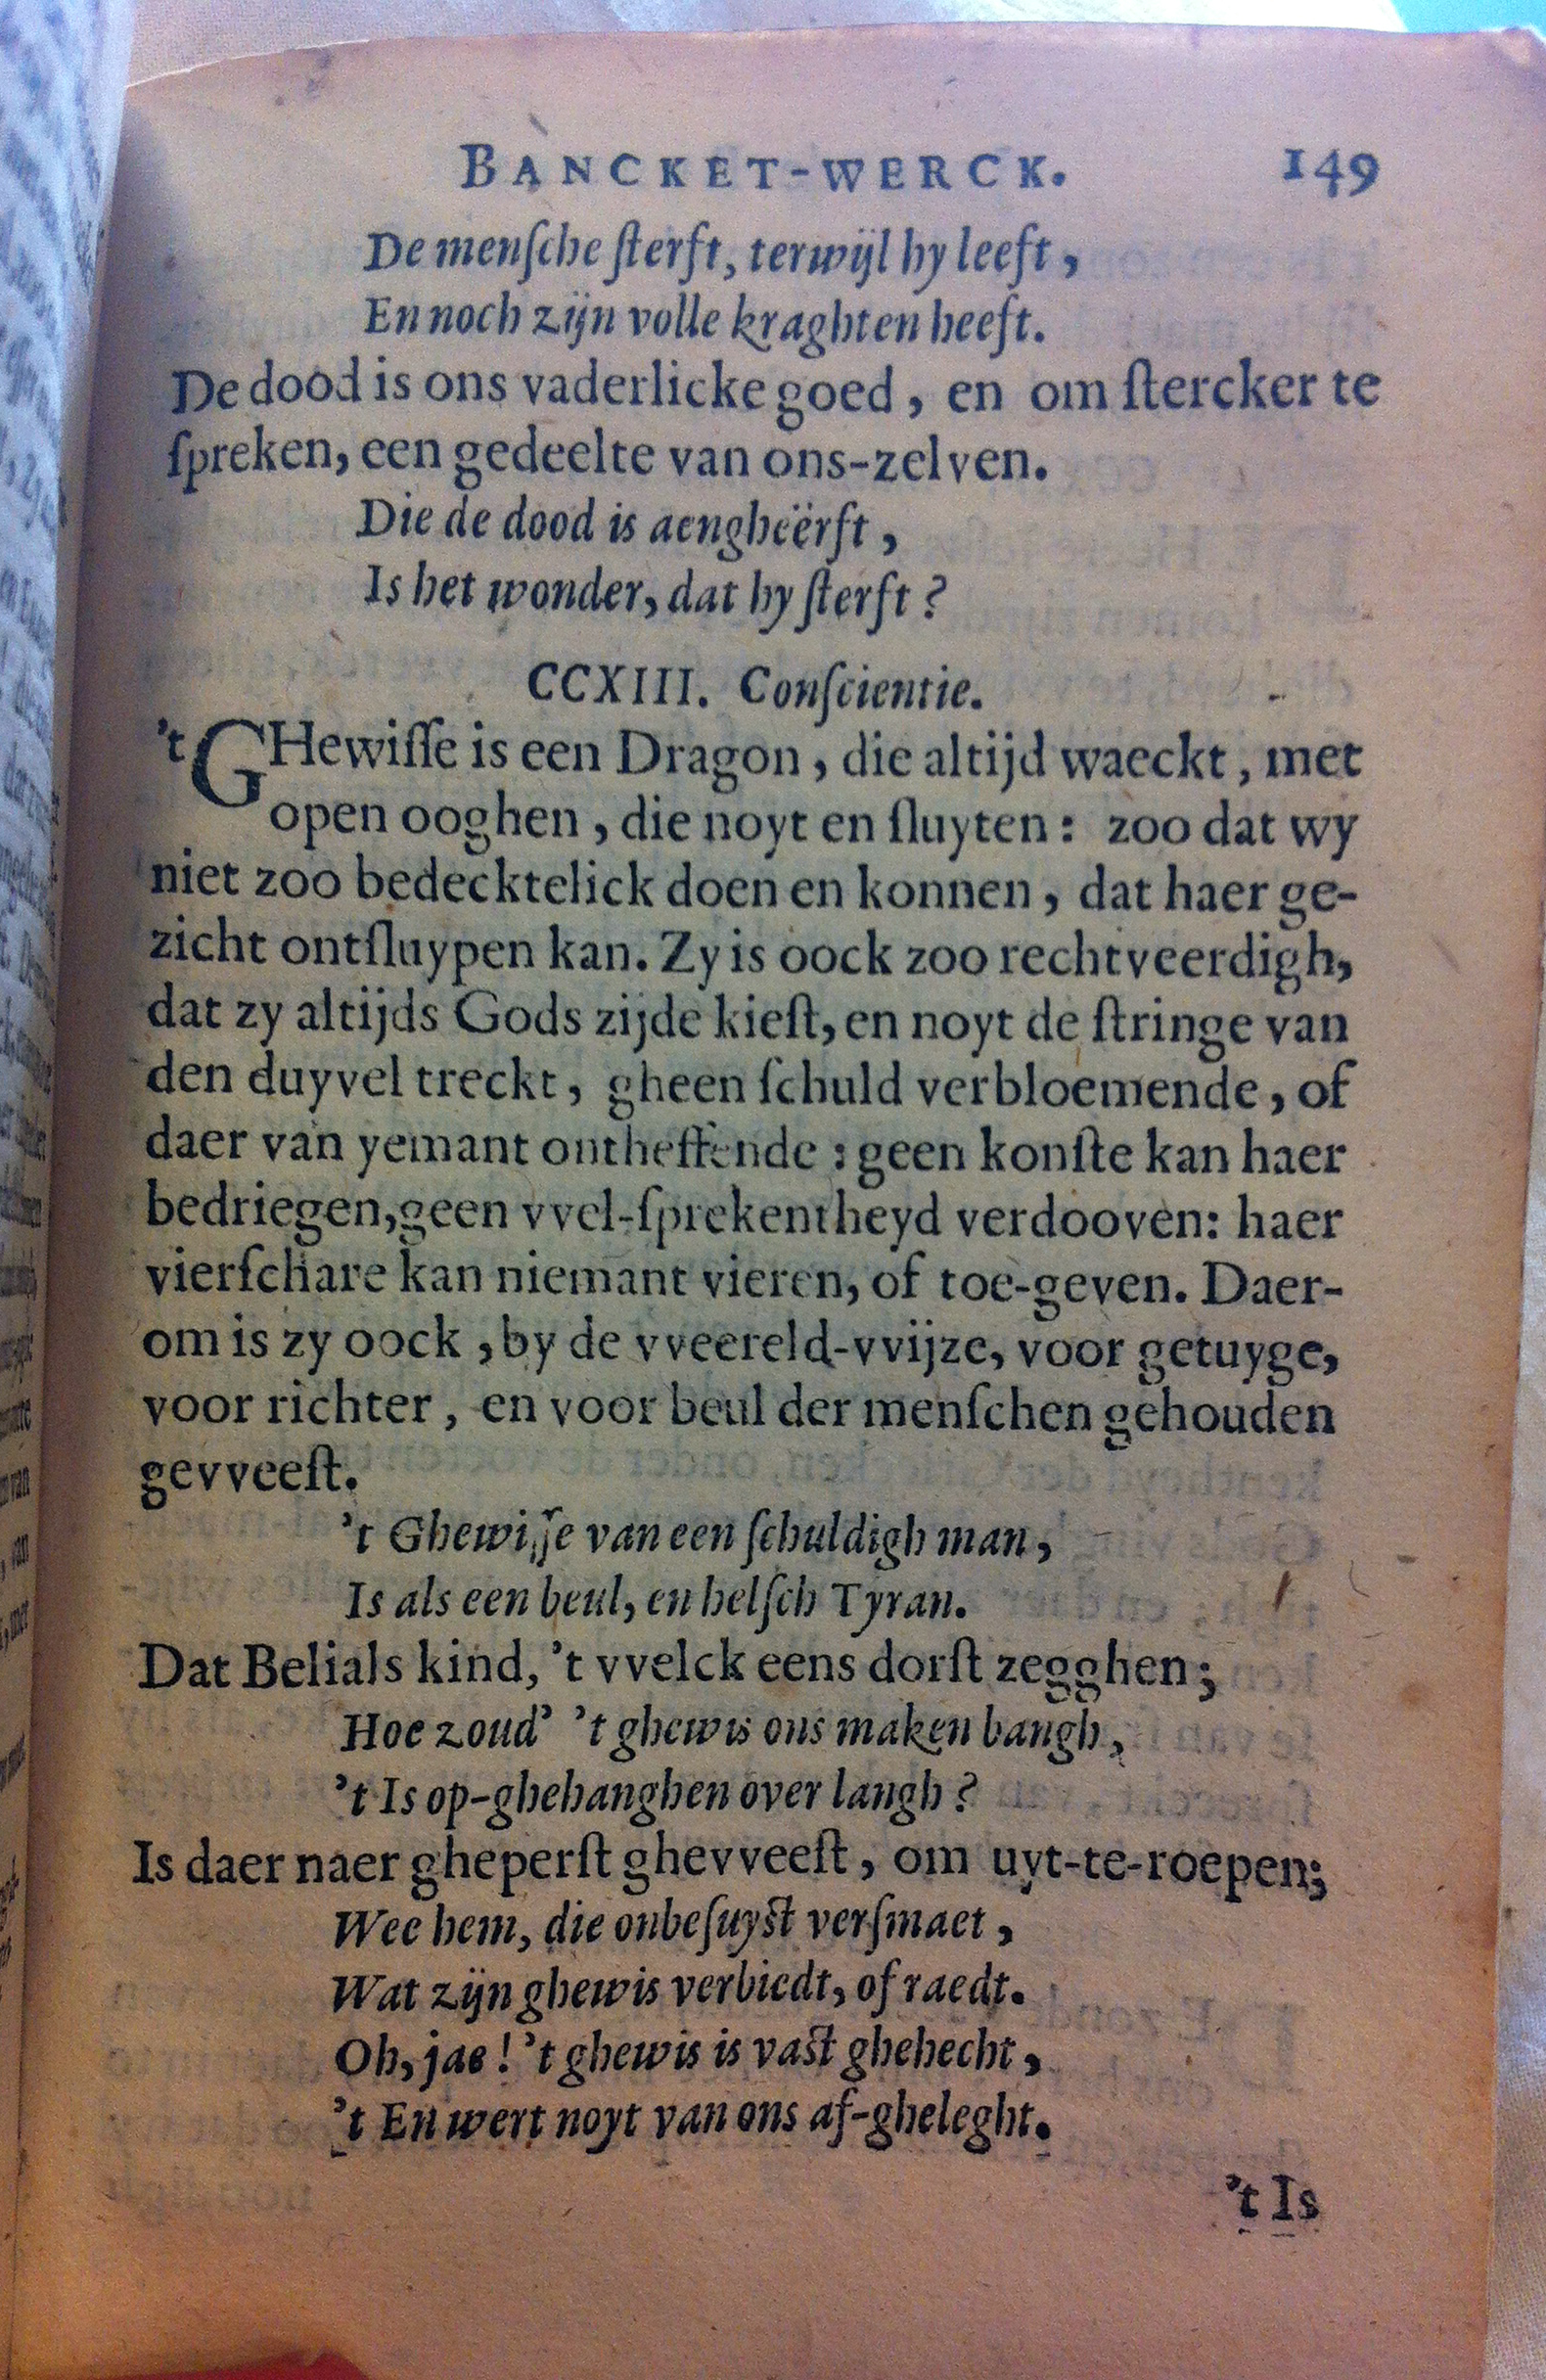 BANCKET-WERCK. 149
De menſche ſterft, terwijl hy leeft,
En noch zijn volle kraghten heeft.
De dood is ons vaderlicke goed, en om ſtercker te
ſpreken, een gedeelte van ons-zelven.
Die de dood is aengheërft,
Is het wonder, dat hy ſterft?
CCXIII. Conſcientie.
't GHewiſſe is een Dragon, die altijd waeckt, met
open ooghen, die noyt en ſluyten: zoo dat wy
niet zoo bedecktelick doen en konnen, dat haer ge-
zicht ontſluypen kan. Zy is oock zoo rechtveerdigh,
dat zy altijds Gods zijde kieſt, en noyt de ſtringe van
den duyvel treckt, gheen ſchuld verbloemende, of
daer van yemant ontheffende: geen konſte kan haer
bedriegen, geen vvel-ſprekentheyd verdooven: haer
vierſchare kan niemant vieren, of toe-geven. Daer-
om is zy oock, by de vveereld-vvijze, voor getuyge,
voor richter, en voor beul der menſchen gehouden
gevveeſt.
't Ghewiſſe van een ſchuldigh man,
Is als een beul, en helſch Tyran.
Dat Belials kind, 't vvelck eens dorſt zegghen;
Hoe zoud' 't ghewis ons maken bangh,
't Is op-ghehanghen over langh?
Is daer naer gheperſt ghevveeſt, om uyt-te-roepen;
Wee hem, die onbeſuyſt verſmaet,
Wat zijn ghewis verbiedt, of raedt.
Oh, jae! 't ghewis is vaſt ghehecht,
't En wert noyt van ons af-gheleght.
't Is